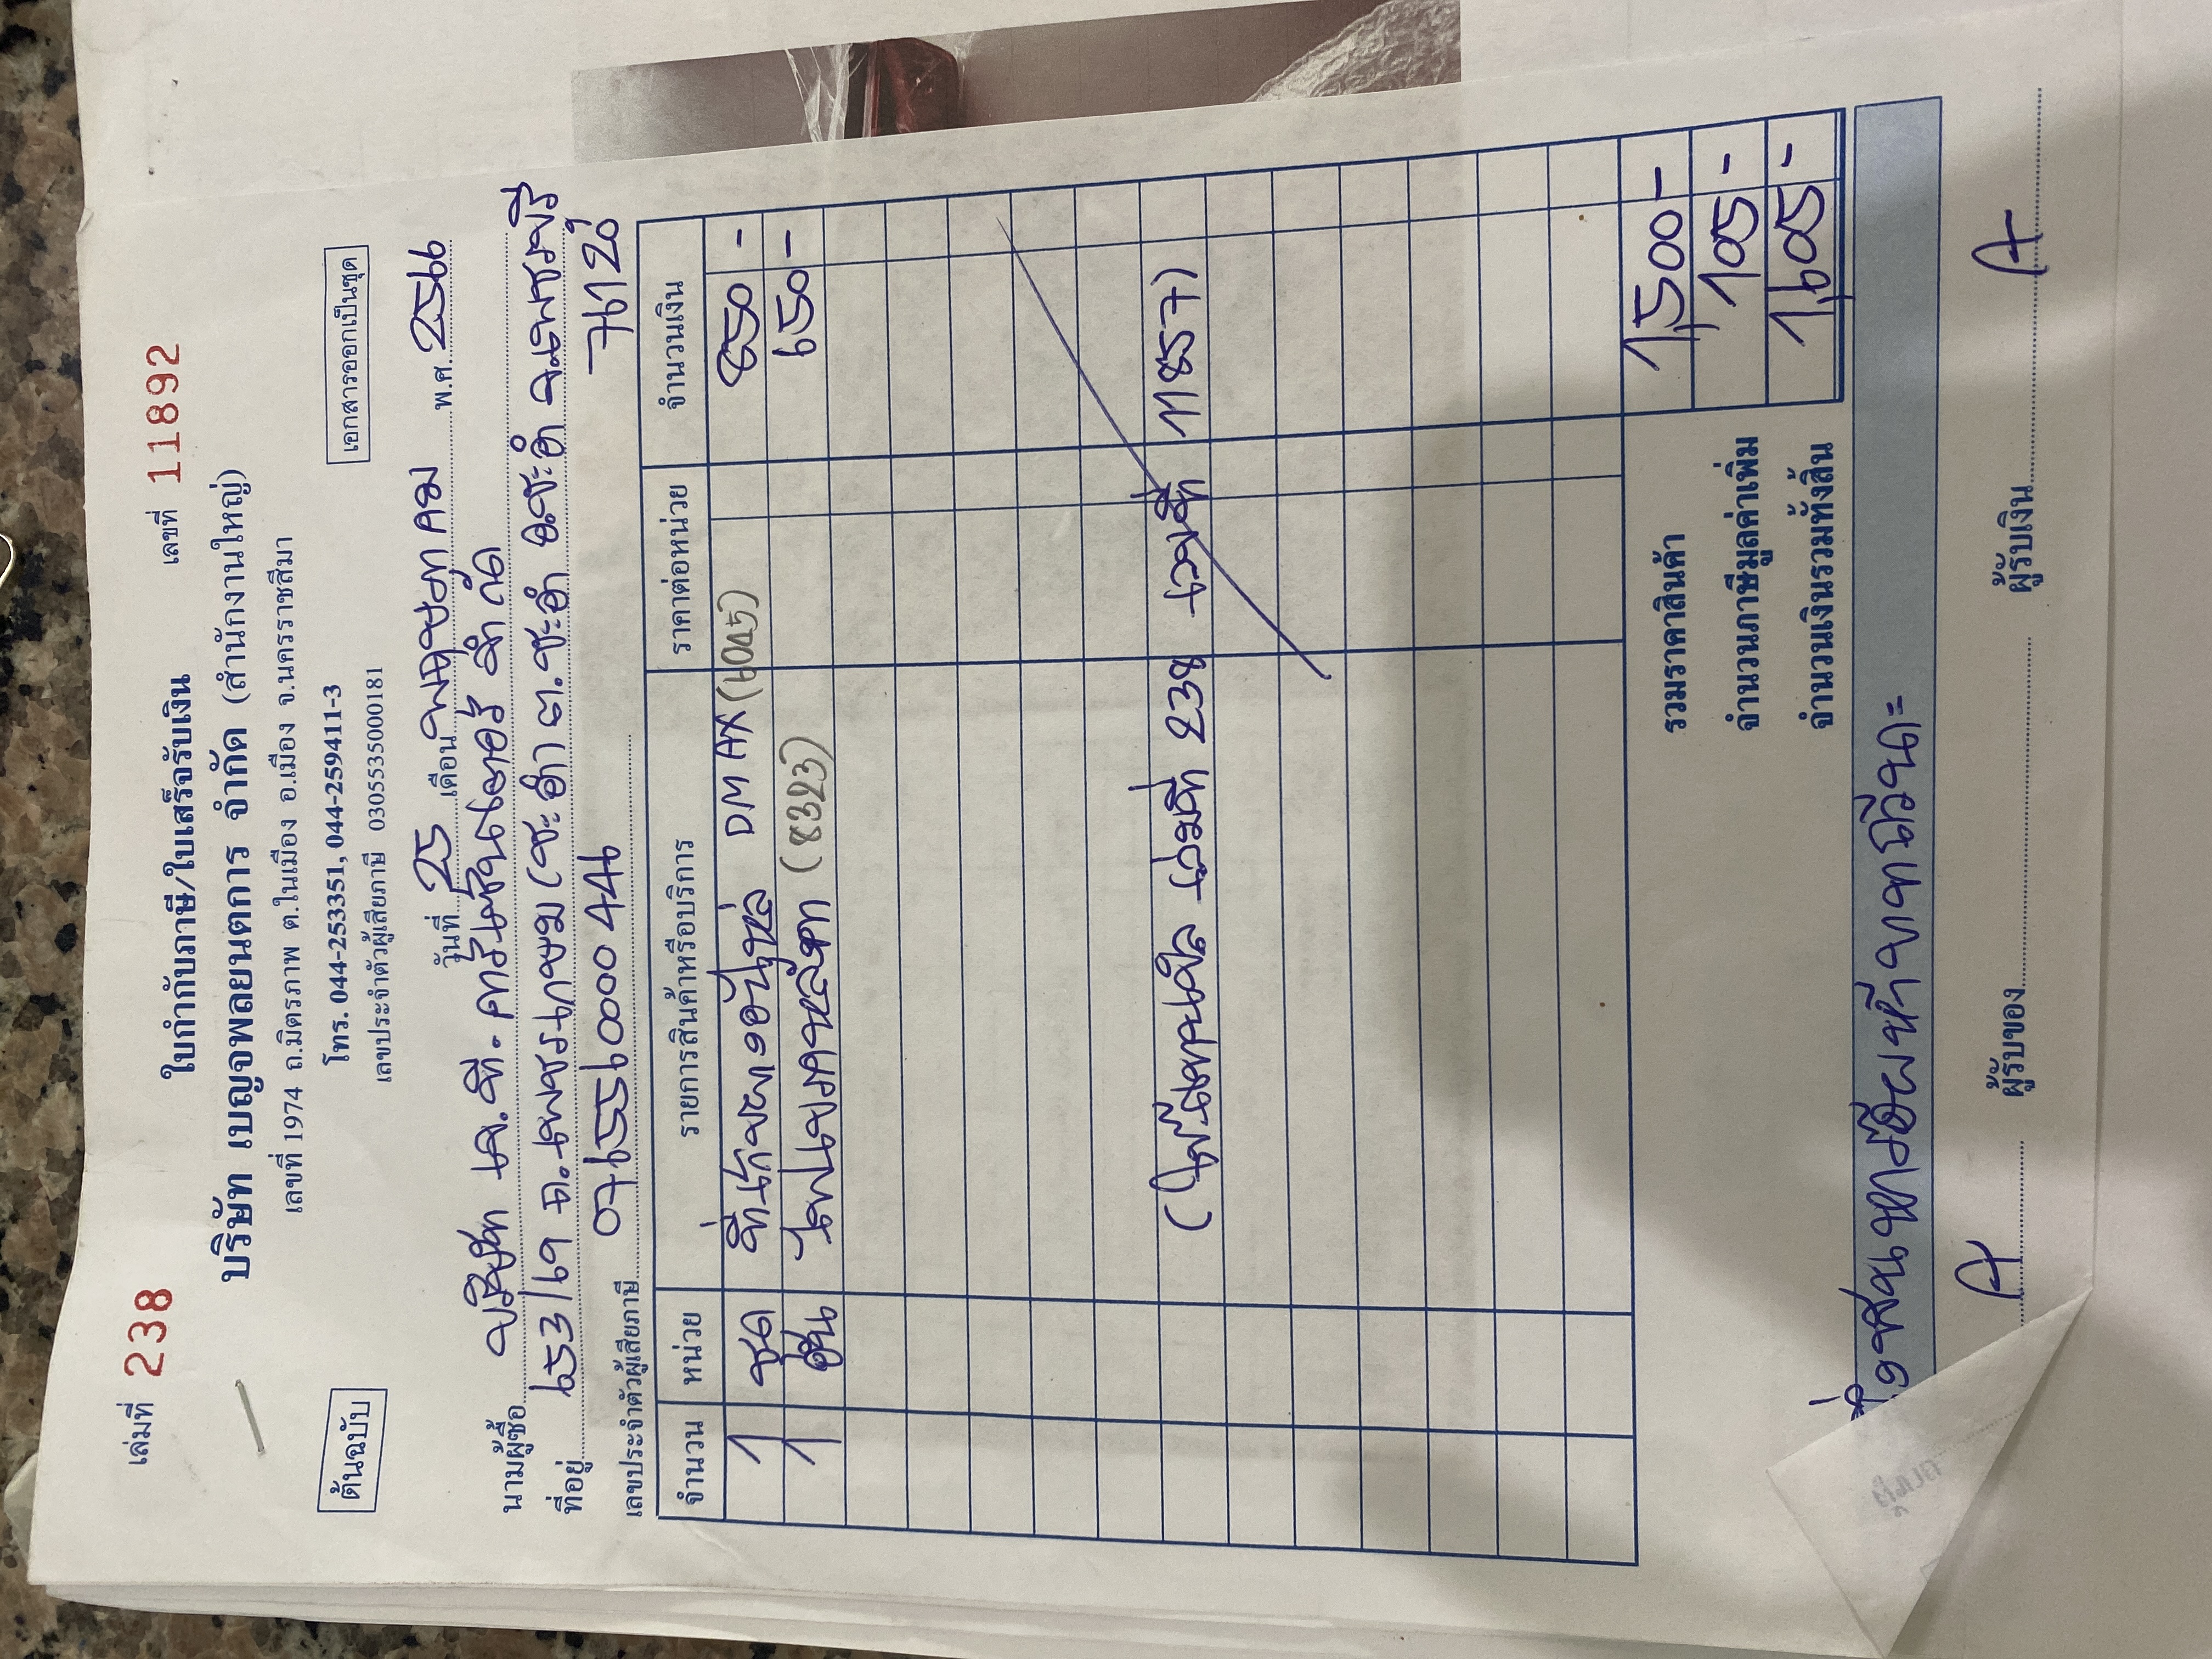 เล่มที่ 238 ใบกำกับภาษี/ใบเสร็จรับเงิน เลขที่ 11892
บริษัท เบญจพลยนตการ จำกัด (สำนักงานใหญ่)
เลขที่ 1974 ถ.มิตรภาพ ต.ในเมือง อ.เมือง จ.นครราชสีมา
ต้นฉบับ โทร. 044-253351, 044-259411-3 เอกสารออกเป็นชุด
เลขประจำตัวผู้เสียภาษี 0305535000181
วันที่ 25 เดือน พฤษภาคม พ.ศ. 2566
นามผู้ซื้อ บริษัท เค.ที. จำกัด
ที่อยู่ 653/69 ถ.เพชรเกษม (ชะอำ) ต.ชะอำ อ.ชะอำ จ.เพชรบุรี
เลขประจำตัวผู้เสียภาษี 0765560000446 76120
จำนวน หน่วย รายการสินค้าหรือบริการ ราคาต่อหน่วย จำนวนเงิน
1 ชุด DMAX (6045) 850 -
1 อัน (8323) 650 -
(ใช้แทนใบ เล่มที่ 238 เลขที่ 11857)
รวมราคาสินค้า 1,500 -
จำนวนภาษีมูลค่าเพิ่ม 105 -
จำนวนเงินรวมทั้งสิ้น 1,605 -
หนึ่งพันหกร้อยห้าบาทถ้วน =
A ผู้รับของ ผู้รับเงิน A